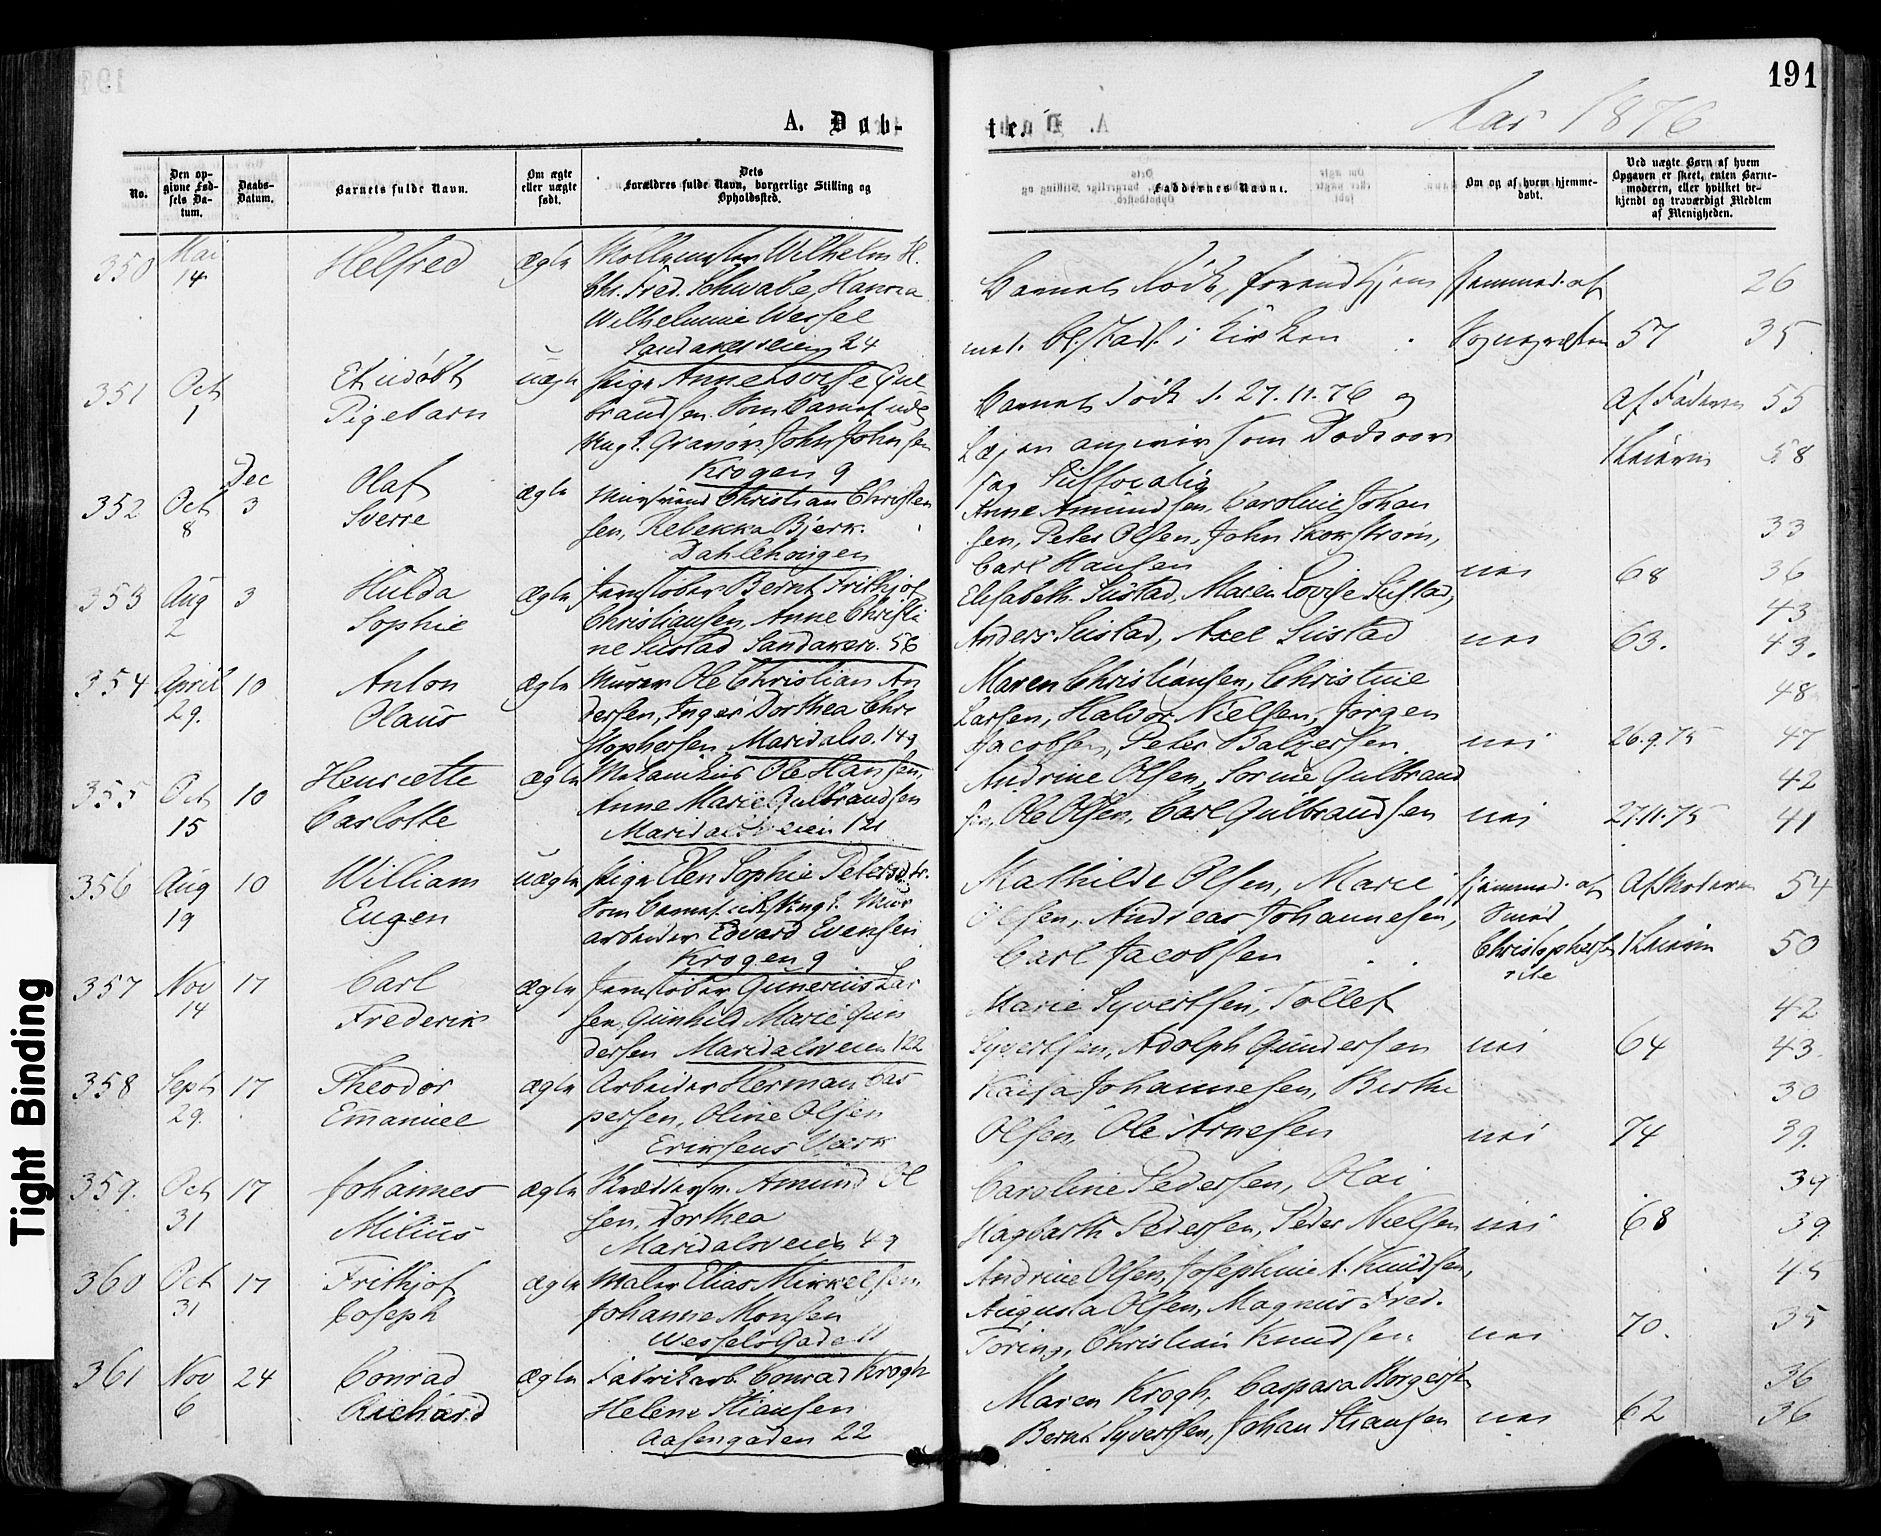 191
Aar 1876
A. Døb-
te.
No.
Den op-
givne Fød-
sels Da-
tum.
Daabs-
Datum.
Barnets fulde Navn.
Om ægte
eller uægte
født.
Dets
Forældres fulde Navn, borgerlige Stilling og
Opholdssted.
Faddernes Navne.
Om og af hvem hjemme-
døbt.
Ved uægte Børn af hvem
Opgaven er skeet, enten Barne-
moderen, eller hvilket be-
kjendt og troværdigt Medlem
af Menigheden.
350
Mai
14
Helfred
ægte
Wilhelm H.
Chr. Fred. Schwabe, Hanna
Wilhelmine Wessel
Sandakerveien 24
Barnet døde, forend hjem
hjemmed. af
26
i Kirken
57
35
351
Oct
1
Et udøbt
Pigebarn
uægte
Pige Anne Lovise Gul
brandsen. Som Barnef. udl
Ungk. Gravør John Johnsen
Krogen 9
Barnet døde d. 27.11.76 og
Lægen angiver som Dødsaar
sag Suffocatio
Af Faderen
55
58
352
Oct
8
Dec
3
Olaf
Sverre
ægte
Christian Christen
sen, Rebekka Bjerk.
Dahlehougen
Anne Amundsen, Caroline Johan
sen, Peter Olsen, John Skovstrøm,
Carl Hansen
nei
68
33
36
353
Aug
2
3
Hulda
Sophie
ægte
Jernstøber Bernt Frithjof
Christiansen, Anne Christi
ne Sustad Sandakerv. 56
Elisabeth Sustad, Maren Lovise Sustad,
Anders Sustad, Axel Sustad
nei
63.
43
43.
354
April
29.
10
Anton
Olaus
ægte
Murer Ole Christian An
dersen, Inger Dorthea Chri
stophersen Maridalsv. 149
Maren Christiansen, Christine
Larsen, Haldor Nielsen, Jørgen
Jacobsen, Peter Balzersen.
nei
26.9.75
48
47
355
Oct
15
10
Henriette
Carlotte
ægte
Mekanikus Ole Hansen,
Anne Marie Gulbrandsen
Maridalsveien 121
Andrine Olsen, Sorine Gulbrand
sen, Ole Olsen, Carl Gulbrandsen
nei
27.11.75
42
41
356
Aug
19
10
William
Eugen
uægte
Pige Elen Sophie Petersdtr.
Som Barnef. udl. Ungk. Mur
arbeider Edvard Evensen
Krogen 9
Mathilde Olsen, Marie
Olsen, Andreas Johannesen,
Carl Jacobsen
hjemmed. af
Smed
Christophersen
Af Moderen
54
50
357
Nov
14
17
Carl
Frederik
ægte
Jernstøber Gunerius Lar
sen, Gunhild Marie Gun
dersen Maridalsveien 122
Marie Syvertsen, Tollef
Syvertsen, Adolph Gundersen
nei
64
42
43.
358
Sept
29.
17
Theodor
Emanuel
ægte
Arbeider Herman Cas
persen, Oline Olsen
Eriksens Værk
Kaisa Johannesen, Berthe
Olsen, Ole Arnesen
nei
74
30
39.
359.
Oct
31
17
Johannes
Milius
ægte
Amund Ol
sen, Dorthea
Maridalsveien 49
Caroline Pedersen, Olai
Hagbarth Pedersen, Peder Nielsen
nei
68
39
39
360
Oct
31
17
Frithjof
Joseph
ægte
Maler Elias Mikkelsen,
Johanne Monsen
Wessels Gade 11
Andrine Olsen, Josephine A. Knudsen,
Augusta Olsen, Magnus Fred.
Toring, Christian Knudsen
nei
70.
45
35
361
Nov
6
24
Conrad
Richard
ægte
Fabrikarb. Conrad Krogh
Helene Stiansen
Aasengaden 22
Maren Krogh, Caspara Borgersen
Bernt Syvertsen, Johan Stiansen
nei
62
36
36
Tight Binding